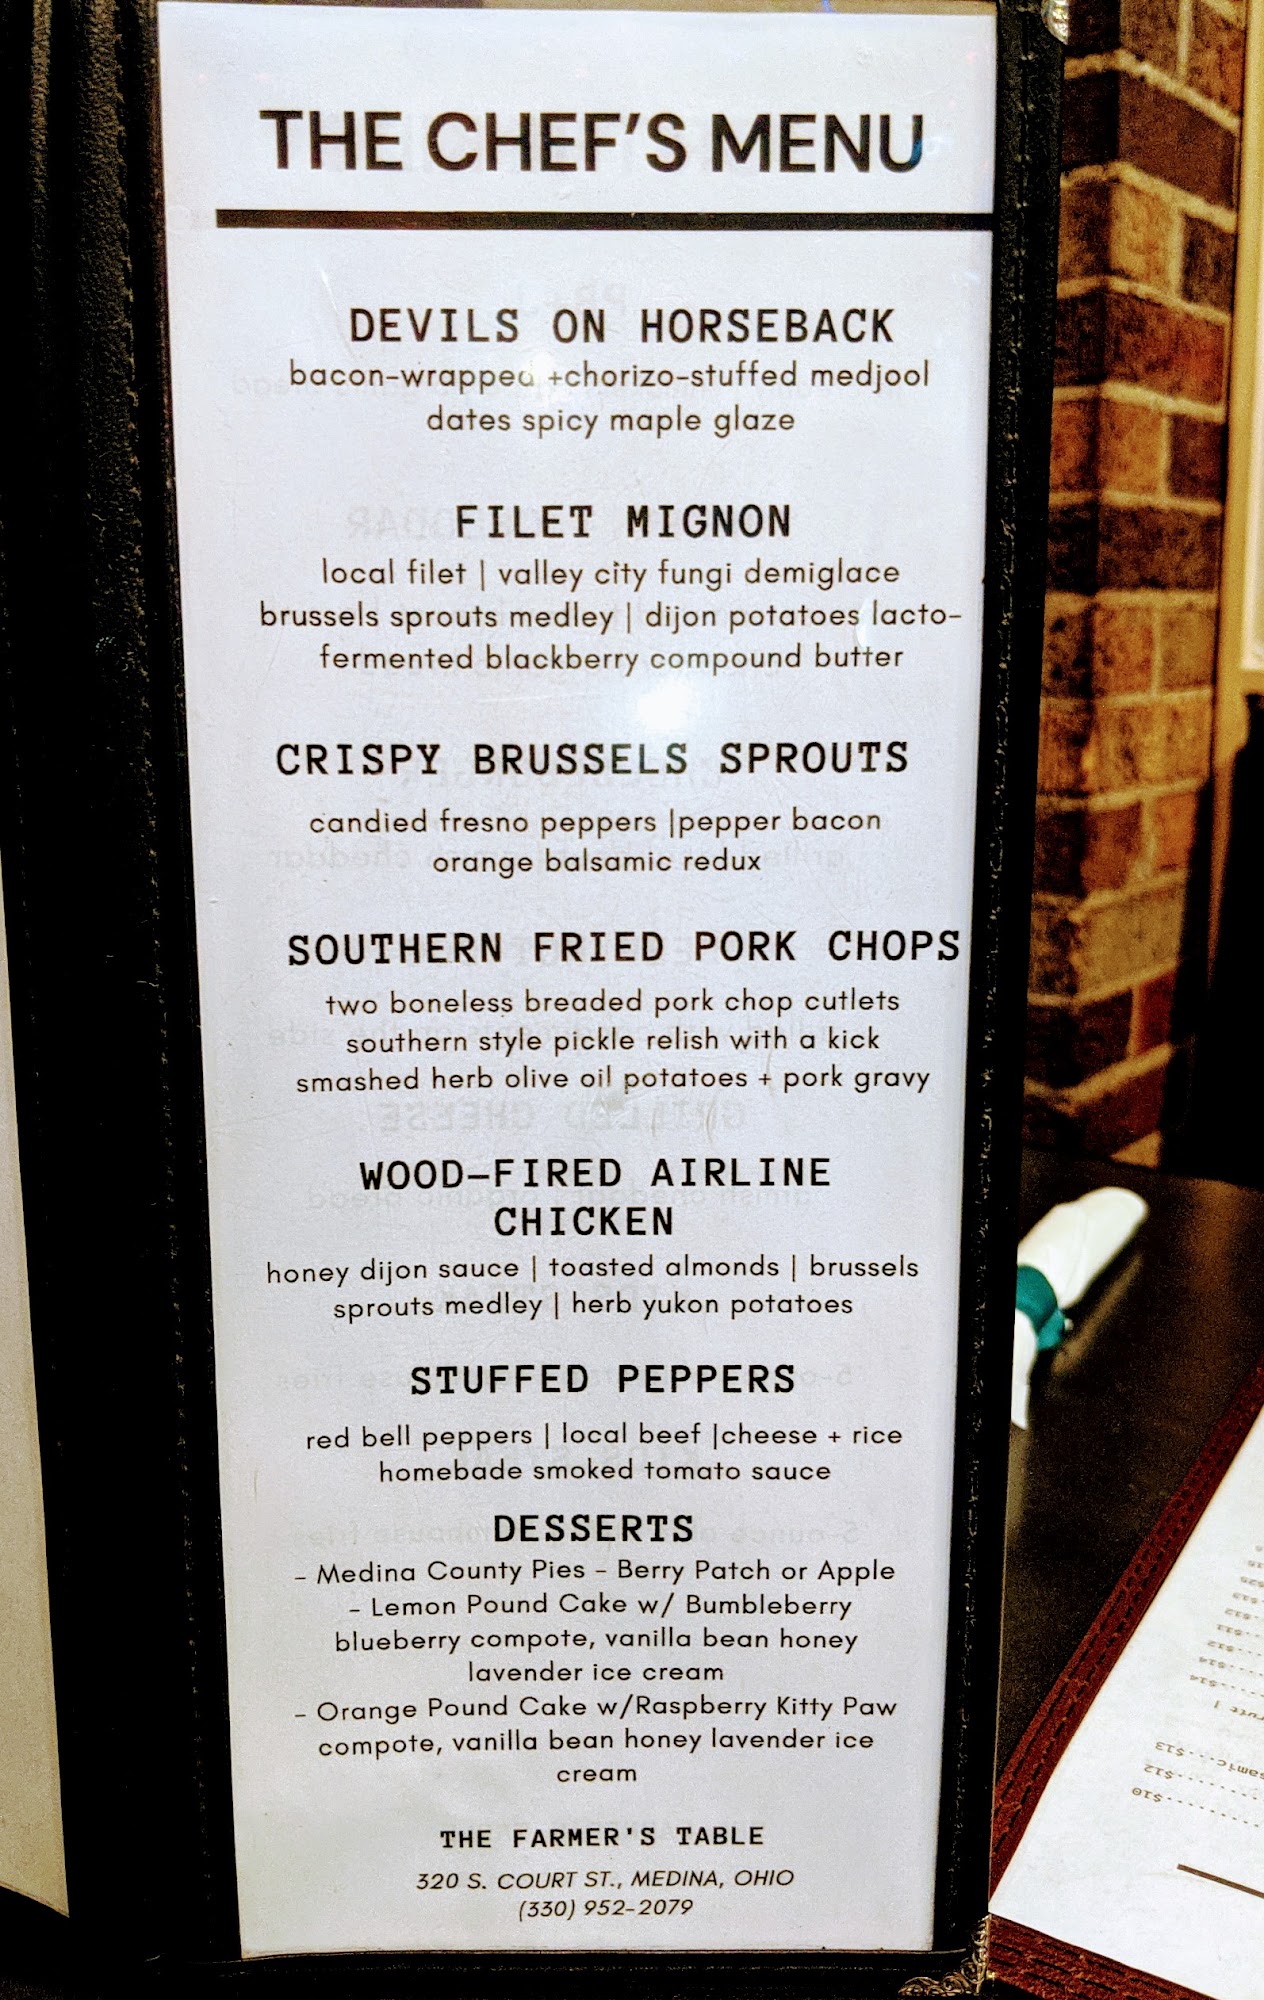 THE CHEF'S MENU
DEVILS ON HORSEBACK
bacon-wrapped +chorizo-stuffed medjool
dates spicy maple glaze
FILET MIGNON
local filet | valley city fungi demiglace
brussels sprouts medley | dijon potatoes lacto-
fermented blackberry compound butter
CRISPY BRUSSELS SPROUTS
candied fresno peppers |pepper bacon
orange balsamic redux
SOUTHERN FRIED PORK CHOPS
two boneless breaded pork chop cutlets
southern style pickle relish with a kick
smashed herb olive oil potatoes + pork gravy
WOOD-FIRED AIRLINE
CHICKEN
honey dijon sauce | toasted almonds | brussels
sprouts medley | herb yukon potatoes
STUFFED PEPPERS
red bell peppers | local beef |cheese + rice
homebade smoked tomato sauce
DESSERTS
- Medina County Pies - Berry Patch or Apple
- Lemon Pound Cake w/ Bumbleberry
blueberry compote, vanilla bean honey
lavender ice cream
- Orange Pound Cake w/Raspberry Kitty Paw
compote, vanilla bean honey lavender ice
cream
THE FARMER'S TABLE
320 S. COURT ST., MEDINA, OHIO
(330) 952-2079
$13
$12
$10